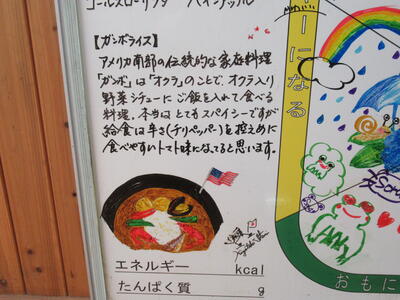 コールスローサラダ パイナップル
【ガンボライス】
アメリカ南部の伝統的な家庭料理
「ガンボ」は「オクラ」のことで、オクラ入り
野菜シチューにご飯を入れて食べる
料理。本場はとてもスパイシーですが
給食は辛さ(チリペッパー)を控えめに
食べやすいトマト味になってると思います。
エネルギー kcal
たんぱく質 g
ーになる
おもに